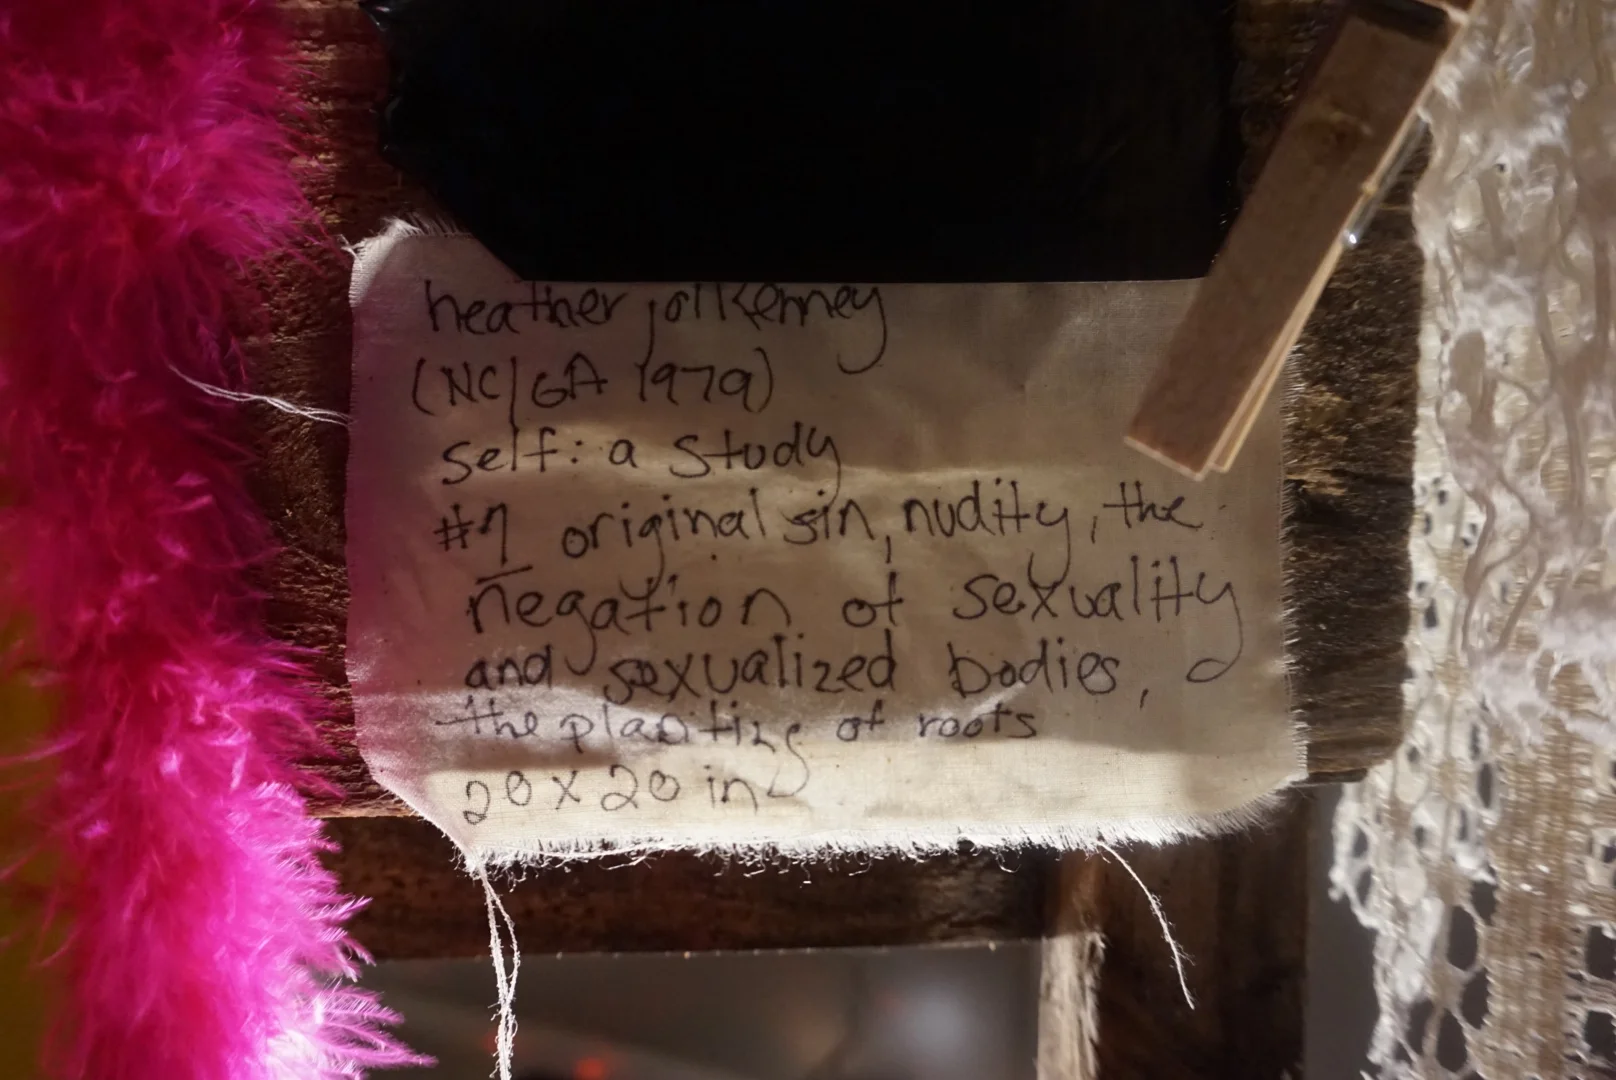 heather jo
(NC/GA 1979)
self: a study
#7 original sin, nudity, the
negation of sexuality
and sexualized bodies,
the planting of roots
20 x 20 in